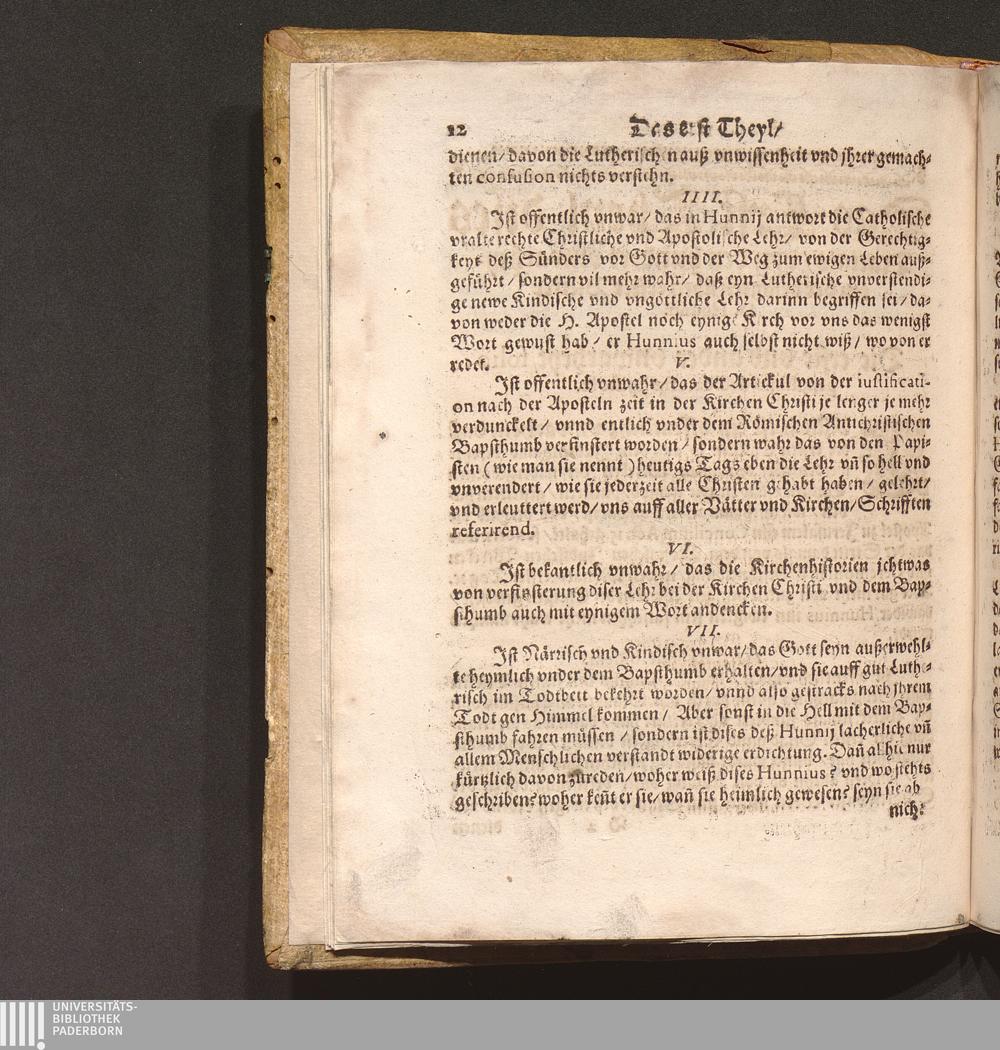 12 Das erst Theyl/
dienen/ davon die Lutherischen auß vnwissenheit vnd jhrer gemach-
ten confusion nichts verstehn.
IIII.
Ist offentlich vnwar/ das in Hunnij antwort die Catholische
vralte rechte Christliche vnd Apostolische Lehr/ von der Gerechtig-
keyt deß Sünders vor Gott vnd der Weg zum ewigen Leben auß-
geführt/ sondern vil mehr wahr/ daß eyn Lutherische vnverstendi-
ge newe Kindische vnd vngöttliche Lehr darinn begriffen sei/ da-
von weder die H. Apostel noch eynige Kirch vor vns das wenigst
Wort gewust hab/ er Hunnius auch selbst nicht wiß/ wovon er
redet.
V.
Ist offentlich vnwahr/ das der Artickul von der iustificati-
on nach der Aposteln zeit in der Kirchen Christi je lenger je mehr
verdunckelt/ vnnd entlich vnder dem Römischen Antichristischen
Bapsthumb verfinstert worden/ sondern wahr das von den Papi-
sten (wie man sie nennt) heutigs Tags eben die Lehr vñ so hell vnd
vnverendert/ wie sie jederzeit alle Christen gehabt haben/ gelehrt/
vnd erleuttert werd/ vns auff aller Vätter vnd Kirchen/ Schrifften
referirend.
VI.
Ist bekantlich vnwahr/ das die Kirchenhistorien jchtwas
von verfinsterung diser Lehr bei der Kirchen Christi vnd dem Bap-
sthumb auch mit eynigem Wort andencken.
VII.
Ist Närrisch vnd Kindisch vnwar/ das Gott seyn außerwehl-
te heymlich vnder dem Bapsthumb erhalten/ vnd sie auff gut Luthe-
risch im Todtbett bekehrt worden/ vnnd also gestracks nach jhrem
Todt gen Himmel kommen/ Aber sonst in die Hell mit dem Bap-
sthumb fahren müssen/ sondern ist dises deß Hunnij lächerliche vñ
allem Menschlichen verstandt widerige erdichtung. Dañ alhie nur
kürtzlich davon zureden/ woher weiß dises Hunnius? vnd wo stehts
geschriben? woher keñt er sie/ wañ sie heimlich gewesen? seyn sie ab
nicht
UNIVERSITÄTS-
BIBLIOTHEK
PADERBORN